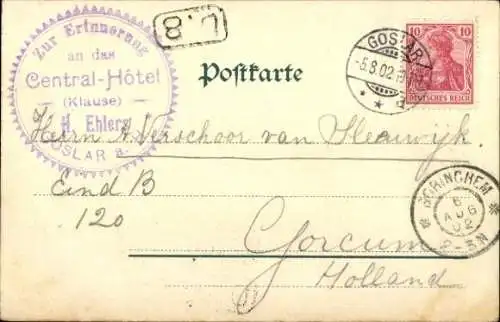 Zur Erinnerung
an das
Central-Hôtel
(Klause)
H. Ehlers
GOSLAR a.
L.8
Postkarte
GOSLAR
-5.8.02
10 10
DEUTSCHES REICH
Herrn A. Verschoor van Sleeuwijk
Eind B
120
Gorcum
Holland
GORINCHEM
6
AUG
02
2-3N